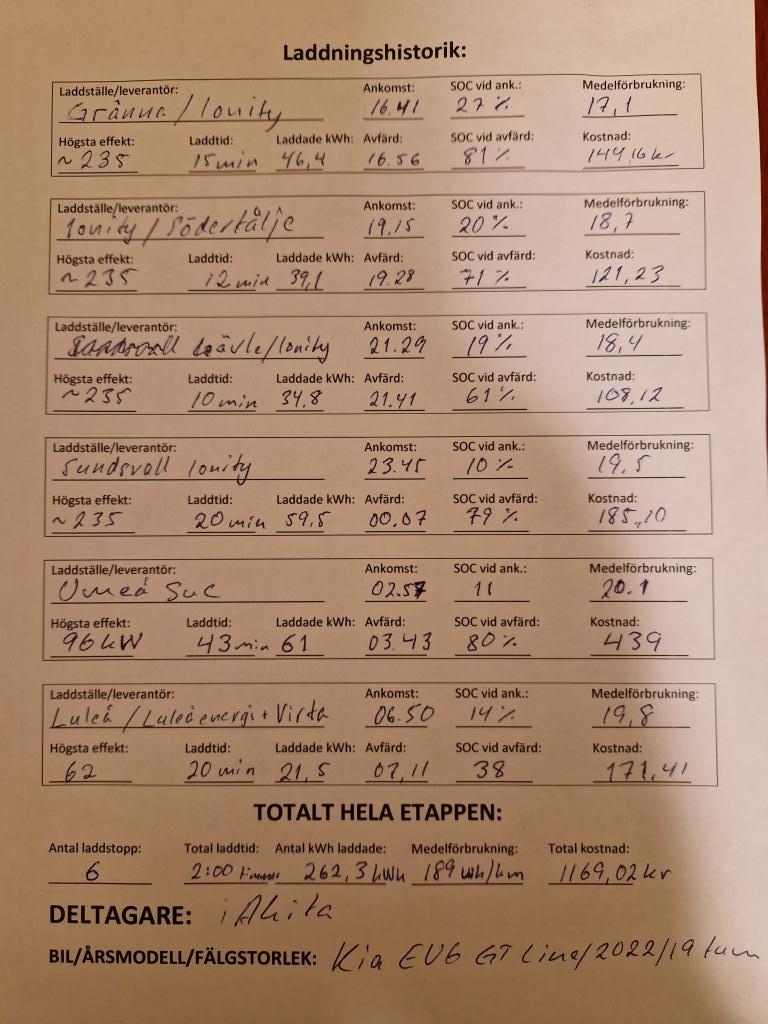 Laddningshistorik:
Laddställe/leverantör: Ankomst: SOC vid ank.: Medelförbrukning:
Gränna / Ionity 16.41 27 % 17,1
Högsta effekt: Laddtid: Laddade kWh: Avfärd: SOC vid avfärd: Kostnad:
~ 235 15 min 46,4 16.56 81 % 144,16 kr
Laddställe/leverantör: Ankomst: SOC vid ank.: Medelförbrukning:
Ionity / Södertälje 19.15 20 % 18,7
Högsta effekt: Laddtid: Laddade kWh: Avfärd: SOC vid avfärd: Kostnad:
~ 235 12 min 39,1 19.28 71 % 121,23
Laddställe/leverantör: Ankomst: SOC vid ank.: Medelförbrukning:
Gävle/Ionity 21.29 19 % 18,4
Högsta effekt: Laddtid: Laddade kWh: Avfärd: SOC vid avfärd: Kostnad:
~ 235 10 min 34,8 21.41 61 % 108,12
Laddställe/leverantör: Ankomst: SOC vid ank.: Medelförbrukning:
Sundsvall Ionity 23.45 10 % 19,5
Högsta effekt: Laddtid: Laddade kWh: Avfärd: SOC vid avfärd: Kostnad:
~ 235 20 min 59,5 00.07 79 % 185,10
Laddställe/leverantör: Ankomst: SOC vid ank.: Medelförbrukning:
Umeå SuC 02.57 11 20.1
Högsta effekt: Laddtid: Laddade kWh: Avfärd: SOC vid avfärd: Kostnad:
96 kW 43 min 61 03.43 80 % 439
Laddställe/leverantör: Ankomst: SOC vid ank.: Medelförbrukning:
Luleå / Luleå energi + Virta 06.50 14 % 19,8
Högsta effekt: Laddtid: Laddade kWh: Avfärd: SOC vid avfärd: Kostnad:
62 20 min 21,5 07,11 38 171,41
TOTALT HELA ETAPPEN:
Antal laddstopp: Total laddtid: Antal kWh laddade: Medelförbrukning: Total kostnad:
6 2:00 timmar 262,3 kWh 189 Wh/km 1169,02 kr
DELTAGARE: iAkita
BIL/ÅRSMODELL/FÄLGSTORLEK: Kia EV6 GT Line/2022/19 tum